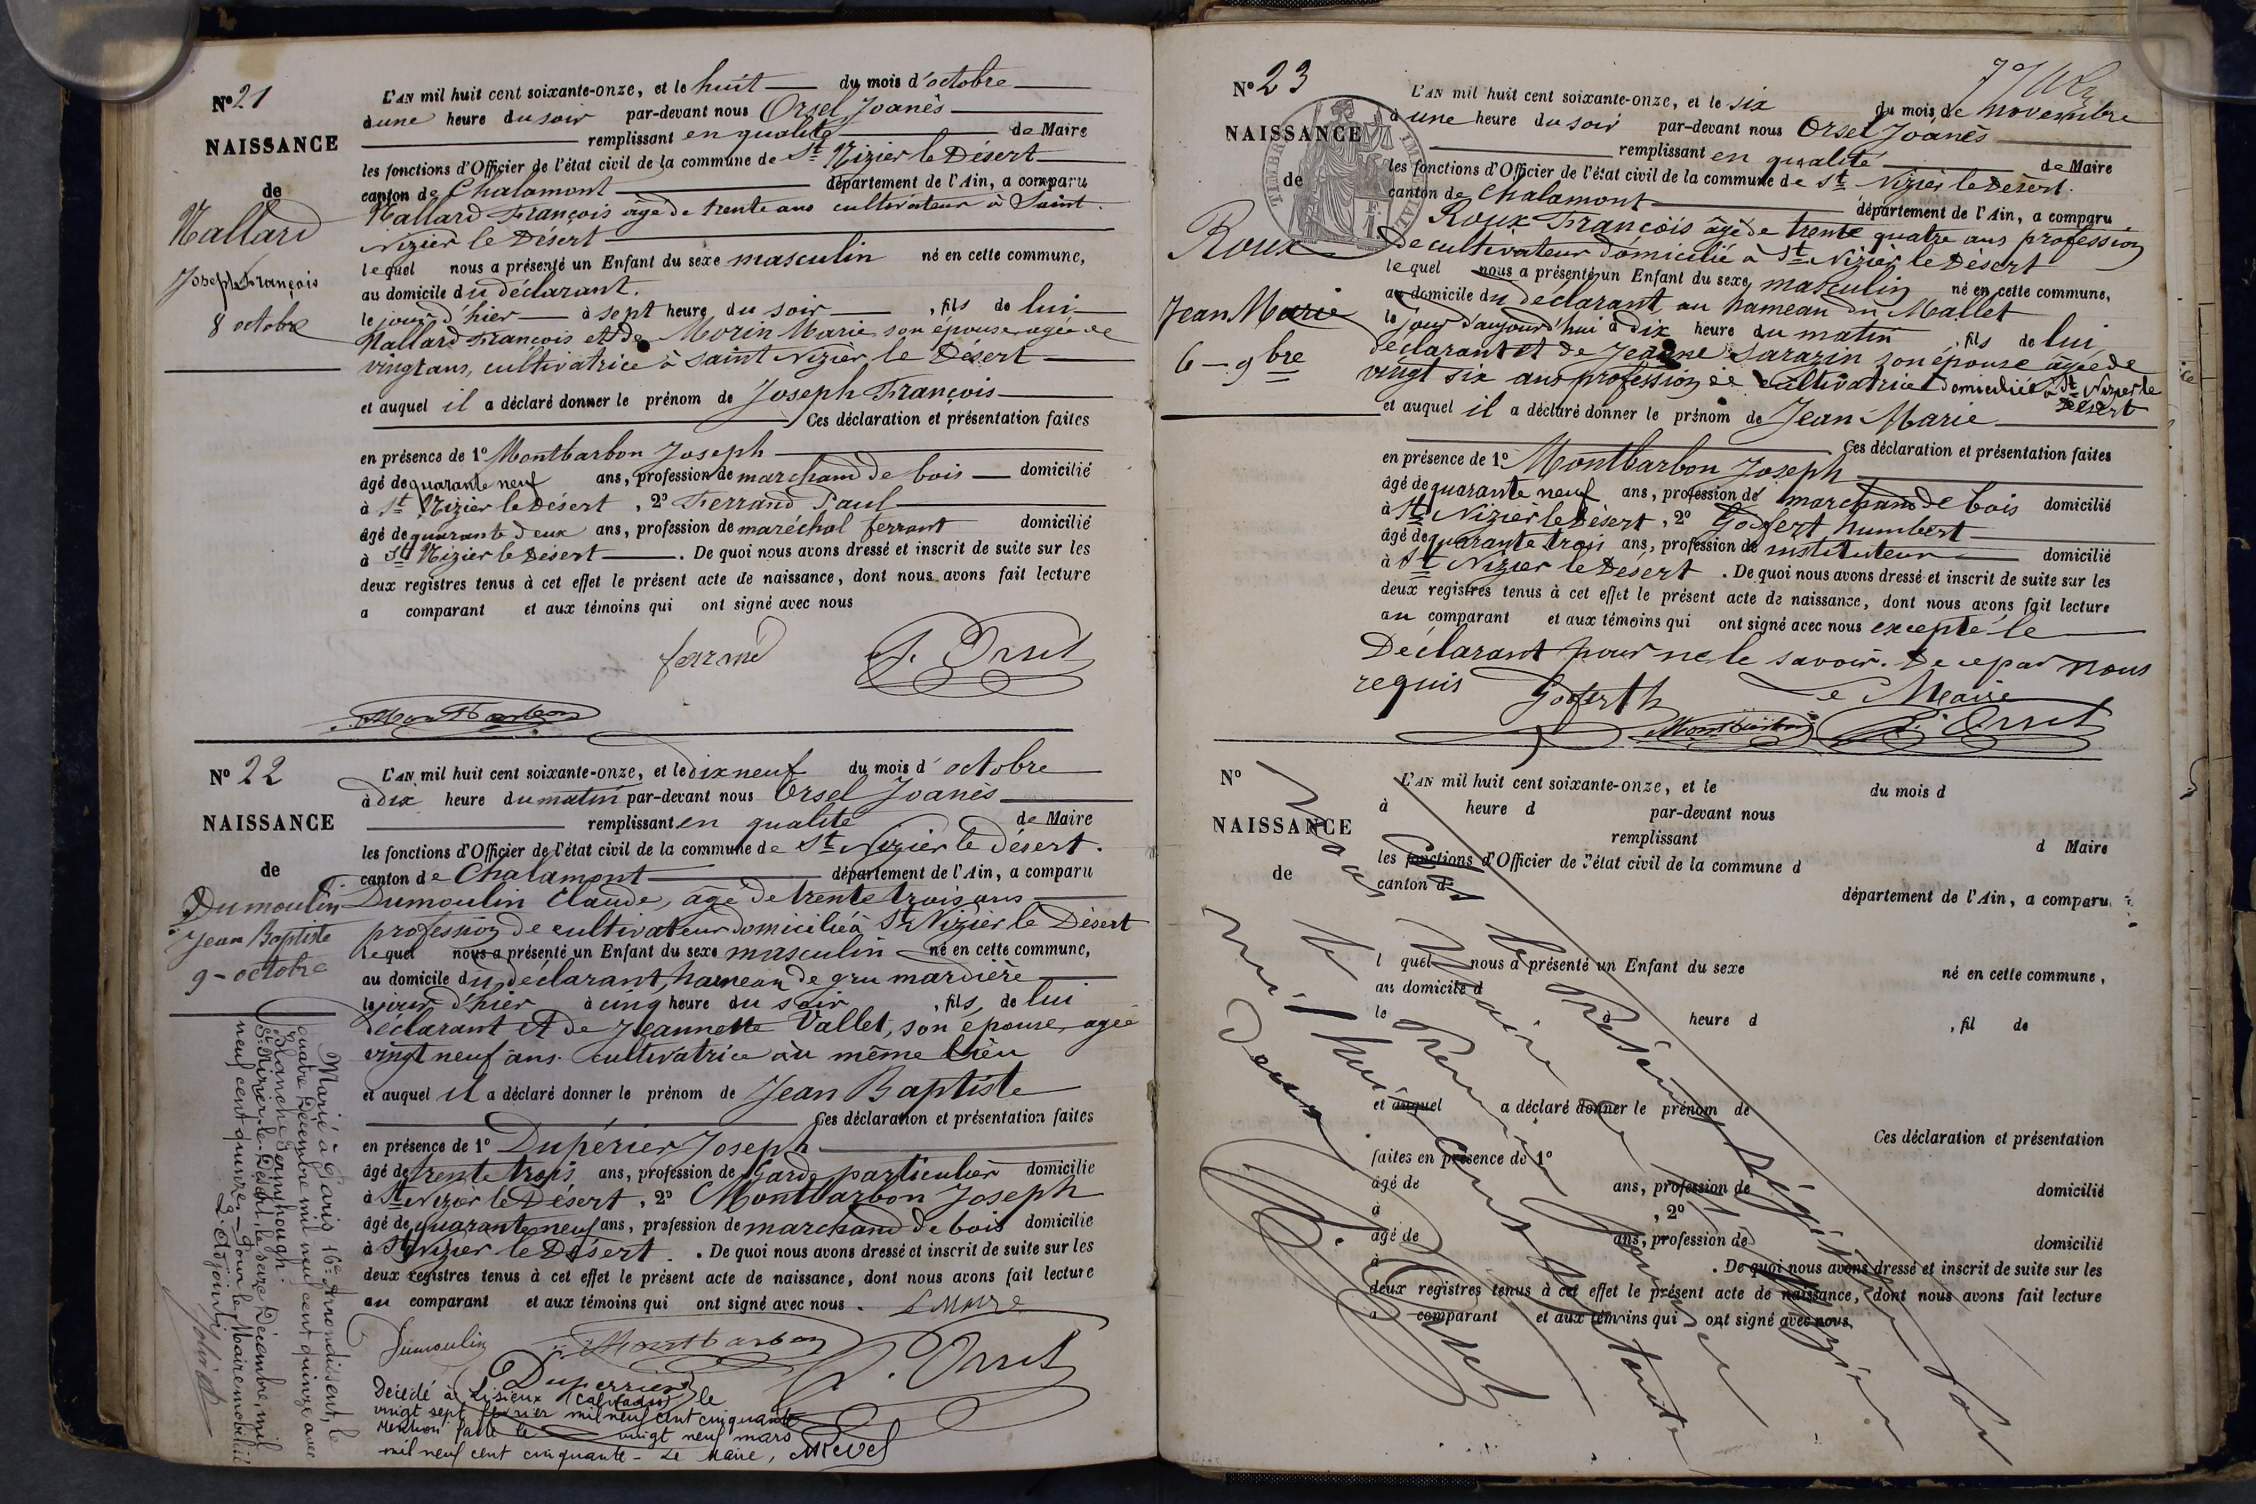 N° 21
NAISSANCE
de
Nallard
Joseph François
8 octobre
L'AN mil huit cent soixante-onze, et le huit du mois d'octobre
à une heure du soir par-devant nous Orsel Joanès
remplissant en qualité de Maire
les fonctions d'Officier de l'état civil de la commune de St Nizier le Désert
canton de Chalamont département de l'Ain, a comparu
Nallard François âgé de trente ans cultivateur à Saint
Nizier le Désert
lequel nous a présenté un Enfant du sexe masculin né en cette commune,
au domicile du déclarant.
le jour d'hier à sept heure du soir, fils de lui
Nallard François et de Morin Marie son épouse agée de
vingt ans, cultivatrice à saint Nizier le Désert
et auquel il a déclaré donner le prénom de Joseph François
Ces déclaration et présentation faites
en présence de 1° Montbarbon Joseph
âgé de quarante neuf ans, profession de marchand de bois domicilié
à St Nizier le Désert, 2° Ferrand Paul
âgé de quarante deux ans, profession de maréchal ferrant domicilié
à St Nizier le Désert. De quoi nous avons dressé et inscrit de suite sur les
deux registres tenus à cet effet le présent acte de naissance, dont nous avons fait lecture
a comparant et aux témoins qui ont signé avec nous
J. Orsel
Montbarbon
N° 22
NAISSANCE
de
Dumoulin
Jean Baptiste
9 - octobre
L'AN mil huit cent soixante-onze, et le dix neuf du mois d'octobre
à dix heure du matin par-devant nous Orsel Joanès
remplissant en qualité de Maire
les fonctions d'Officier de l'état civil de la commune de St Nizier le désert.
canton de Chalamont département de l'Ain, a comparu
Dumoulin Claude, âgé de trente trois ans
profession de cultivateur domicilié à St Nizier le Désert
lequel nous a présenté un Enfant du sexe masculin né en cette commune,
au domicile du déclarant, hameau de gru mardière
le jour d'hier à cinq heure du soir, fils de lui
déclarant et de Jeannette Vallet, son épouse, agée
vingt neuf ans. cultivatrice au même lieu
et auquel il a déclaré donner le prénom de Jean Baptiste
Ces déclaration et présentation faites
en présence de 1° Dupérier Joseph
âgé de trente trois ans, profession de Garde particulier domicilié
à St Nizier le Désert, 2° Montbarbon Joseph
âgé de quarante neuf ans, profession de marchand de bois domicilié
à St Nizier le Désert. De quoi nous avons dressé et inscrit de suite sur les
deux registres tenus à cet effet le présent acte de naissance, dont nous avons fait lecture
au comparant et aux témoins qui ont signé avec nous. Le Maire
Dumoulin Montbarbon
Duperrier J. Orsel
Décédé à Lisieux (Calvados) le
vingt sept février mil neuf cent cinquante
Mention faite le vingt neuf mars
mil neuf cent cinquante - Le Maire,
Marié à Paris 16e Arrondissent, le
quatre Décembre mil neuf cent quinze avec
Blanche
St Nizier-le-Désert, le seize Décembre, mil
neuf cent quinze. - Pour le Maire mobilisé
L'Adjoint,
N° 23
NAISSANCE
de
Roux
Jean Marie
6 - 9bre
L'AN mil huit cent soixante-onze, et le six du mois de novembre
à une heure du soir par-devant nous Orsel Joanès
remplissant en qualité de Maire
les fonctions d'Officier de l'état civil de la commune de St Nizier le Désert.
canton de Chalamont département de l'Ain, a comparu
Roux François âgé de trente quatre ans profession
de cultivateur domicilié à St Nizier le Désert
lequel nous a présenté un Enfant du sexe masculin né en cette commune,
au domicile du déclarant au hameau du Mallet
le jour d'aujourd'hui à dix heure du matin, fils de lui
déclarant et de Jeanne Sarazin son épouse âgée de
vingt six ans profession de cultivatrice domiciliée à St Nizier le
Désert
et auquel il a déclaré donner le prénom de Jean Marie
Ces déclaration et présentation faites
en présence de 1° Montbarbon Joseph
âgé de quarante neuf ans, profession de marchand de bois domicilié
à St Nizier le Désert, 2° Goffert humbert
âgé de quarante trois ans, profession de instituteur domicilié
à St Nizier le Désert. De quoi nous avons dressé et inscrit de suite sur les
deux registres tenus à cet effet le présent acte de naissance, dont nous avons fait lecture
au comparant et aux témoins qui ont signé avec nous excepté le
Déclarant pour ne le savoir. De ce par nous
requis
Le Maire
Montbarbon J. Orsel
N°
NAISSANCE
de
L'AN mil huit cent soixante-onze, et le du mois d
à heure d par-devant nous
remplissant d Maire
les fonctions d'Officier de l'état civil de la commune d
canton d département de l'Ain, a comparu
l quel nous a présenté un Enfant du sexe né en cette commune,
au domicile d
le à heure d , fil de
et auquel a déclaré donner le prénom de
Ces déclaration et présentation
faites en présence de 1°
âgé de ans, profession de domicilié
à , 2°
âgé de ans, profession de domicilié
à . De quoi nous avons dressé et inscrit de suite sur les
deux registres tenus à cet effet le présent acte de naissance, dont nous avons fait lecture
a comparant et aux témoins qui ont signé avec nous.
Clos le Présent Régistre par
nous Maire de St Nizier
le Premier Janvier
mil huit cent soixante
douze
J. Orsel